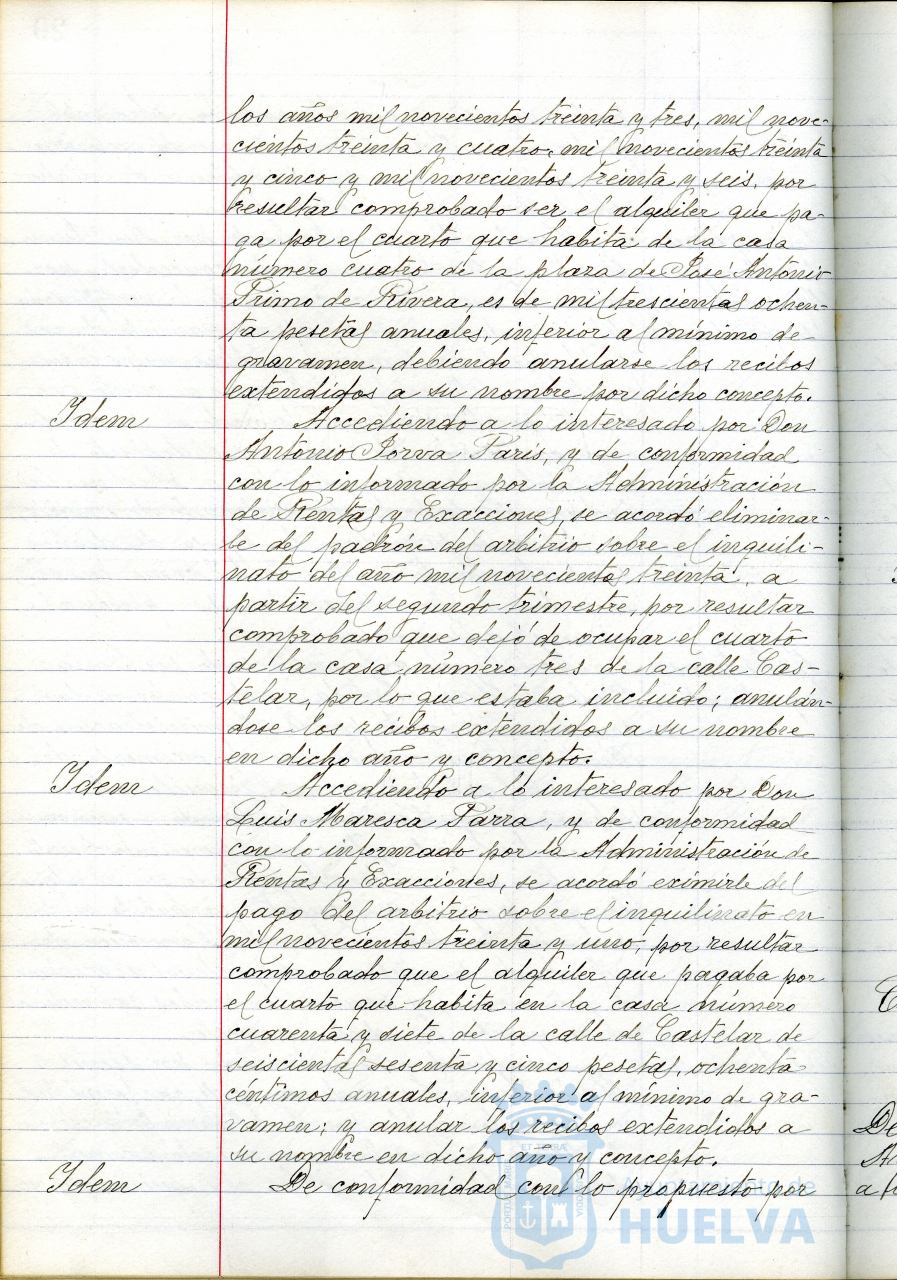 los años mil novecientos treinta y tres, mil nove-
cientos treinta y cuatro, mil novecientos treinta
y cinco y mil novecientos treinta y seis, por
resultar comprobado ser el alquiler que pa-
ga por el cuarto que habita de la casa
número cuatro de la plaza de José Antonio
Primo de Rivera, es de mil trescientas ochen-
ta pesetas anuales, inferior al mínimo de
gravamen, debiendo anularse los recibos
extendidos a su nombre por dicho concepto.
Idem
Accediendo a lo interesado por Don
Antonio Jorva Farís, y de conformidad
con lo informado por la Administración
de Rentas y Exacciones, se acordó eliminar-
le del padrón del arbitrio sobre el inquili-
nato del año mil novecientos treinta, a
partir del segundo trimestre, por resultar
comprobado que dejó de ocupar el cuarto
de la casa número tres de la calle Cas-
telar, por lo que estaba incluido; anulán-
dose los recibos extendidos a su nombre
en dicho año y concepto.
Idem
Accediendo a lo interesado por Don
Luis Maresca Parra, y de conformidad
con lo informado por la Administración de
Rentas y Exacciones, se acordó eximirle del
pago del arbitrio sobre el inquilinato en
mil novecientos treinta y uno, por resultar
comprobado que el alquiler que pagaba por
el cuarto que habita en la casa número
cuarenta y siete de la calle de Castelar de
seiscientas sesenta y cinco pesetas, ochenta
céntimos anuales, inferior al mínimo de gra-
vamen; y anular los recibos extendidos a
su nombre en dicho año y concepto.
Idem
De conformidad con lo propuesto por
Ayuntamiento de
HUELVA